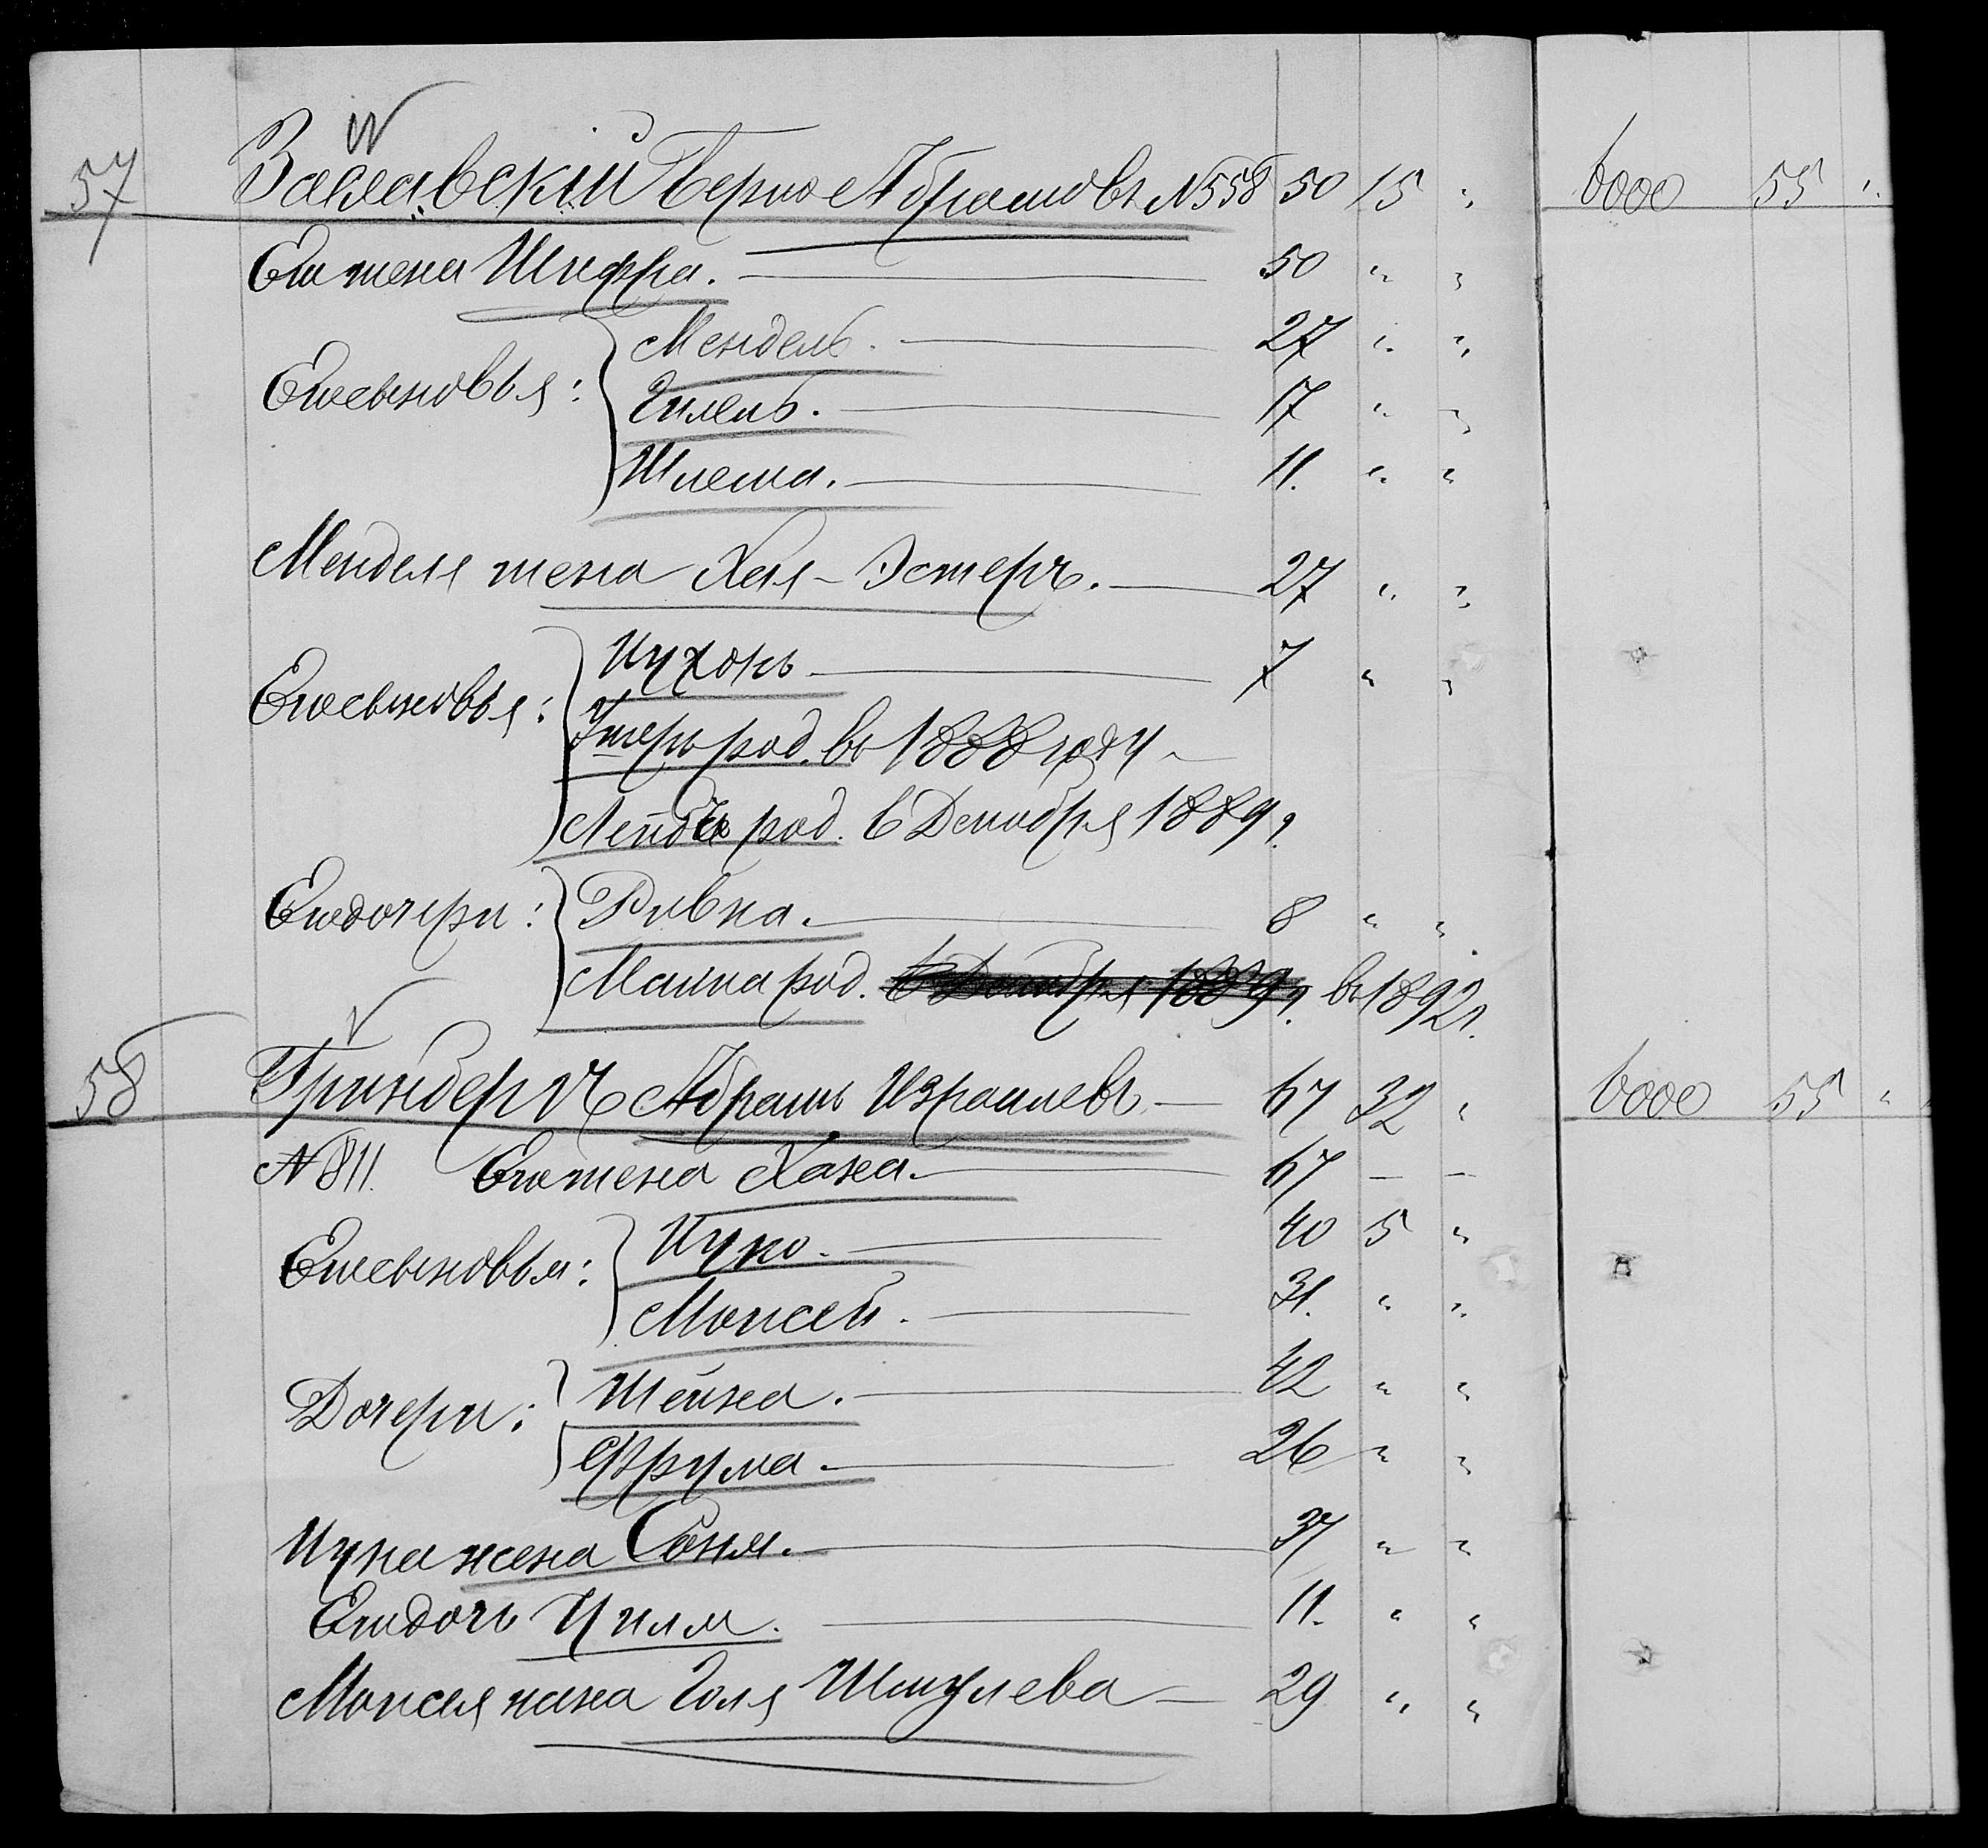 57 Заславскій Берко Абрамовъ №558 50 15 " 6000 55 "
Его жена Шифра. — 50 " "
Его сыновья: Мендель. — 27 " "
Гилель. — 17 " "
Шлема. — 11. " "
Менделя жена Хая-Эстеръ. — 27 " "
Его сыновья: Ицхокъ — 7 " "
род. въ 1888 году
Лейбъ род. 6 Декабря 1889 г.
Его дочери: Ривка. — 8 " "
Малка род. 6 Декабря 1889 г. въ 1892 г.
58 Гринбергъ Абрамъ Израилевъ — 67 32 " 6000 55 "
№ 811. Его жена Хана — 67 — —
Его сыновья: Ицко. — 40 5 "
Моисей. — 31. " "
Дочери: Шейна. — 42 " "
Фрума. — 26 " "
Ицка жена Соня. — 37 " "
Его дочь Циля. — 11. " "
Моисея жена Голя Шмулева — 29 " "